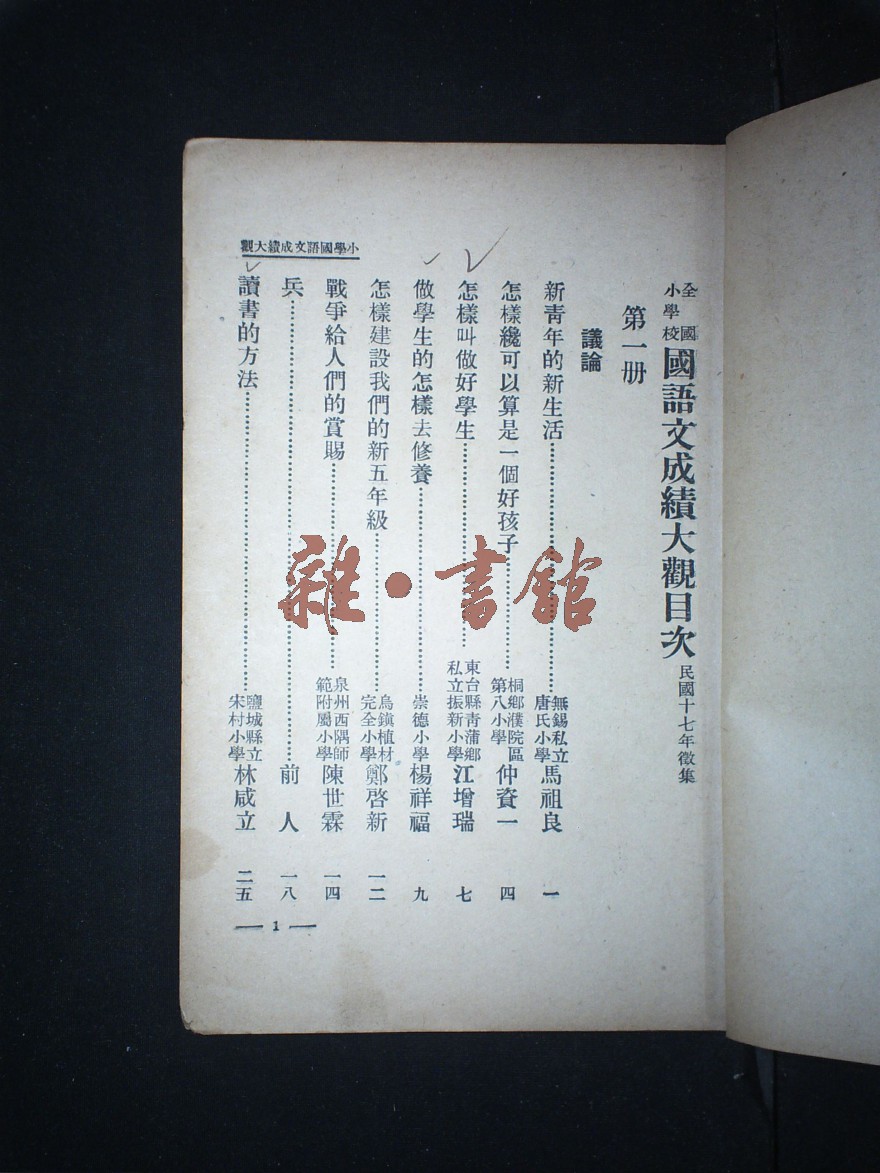 全國小學校國語文成績大觀目次 民國十七年徵集
第一册
議論
新青年的新生活 無錫私立唐氏小學 馬祖良 一
怎樣纔可以算是一個好孩子 桐鄉濮院區第八小學 仲資一 四
怎樣叫做好學生 東台縣青蒲鄉私立振新小學 江增瑞 七
做學生的怎樣去修養 崇德小學 楊祥福 九
怎樣建設我們的新五年級 烏鎮植材完全小學 鄭啓新 一二
戰爭給人們的賞賜 泉州西隅師範附屬小學 陳世霖 一四
兵 前人 一八
讀書的方法 鹽城縣立宋村小學 林咸立 二五
小學國語文成績大觀
1
雜·書館